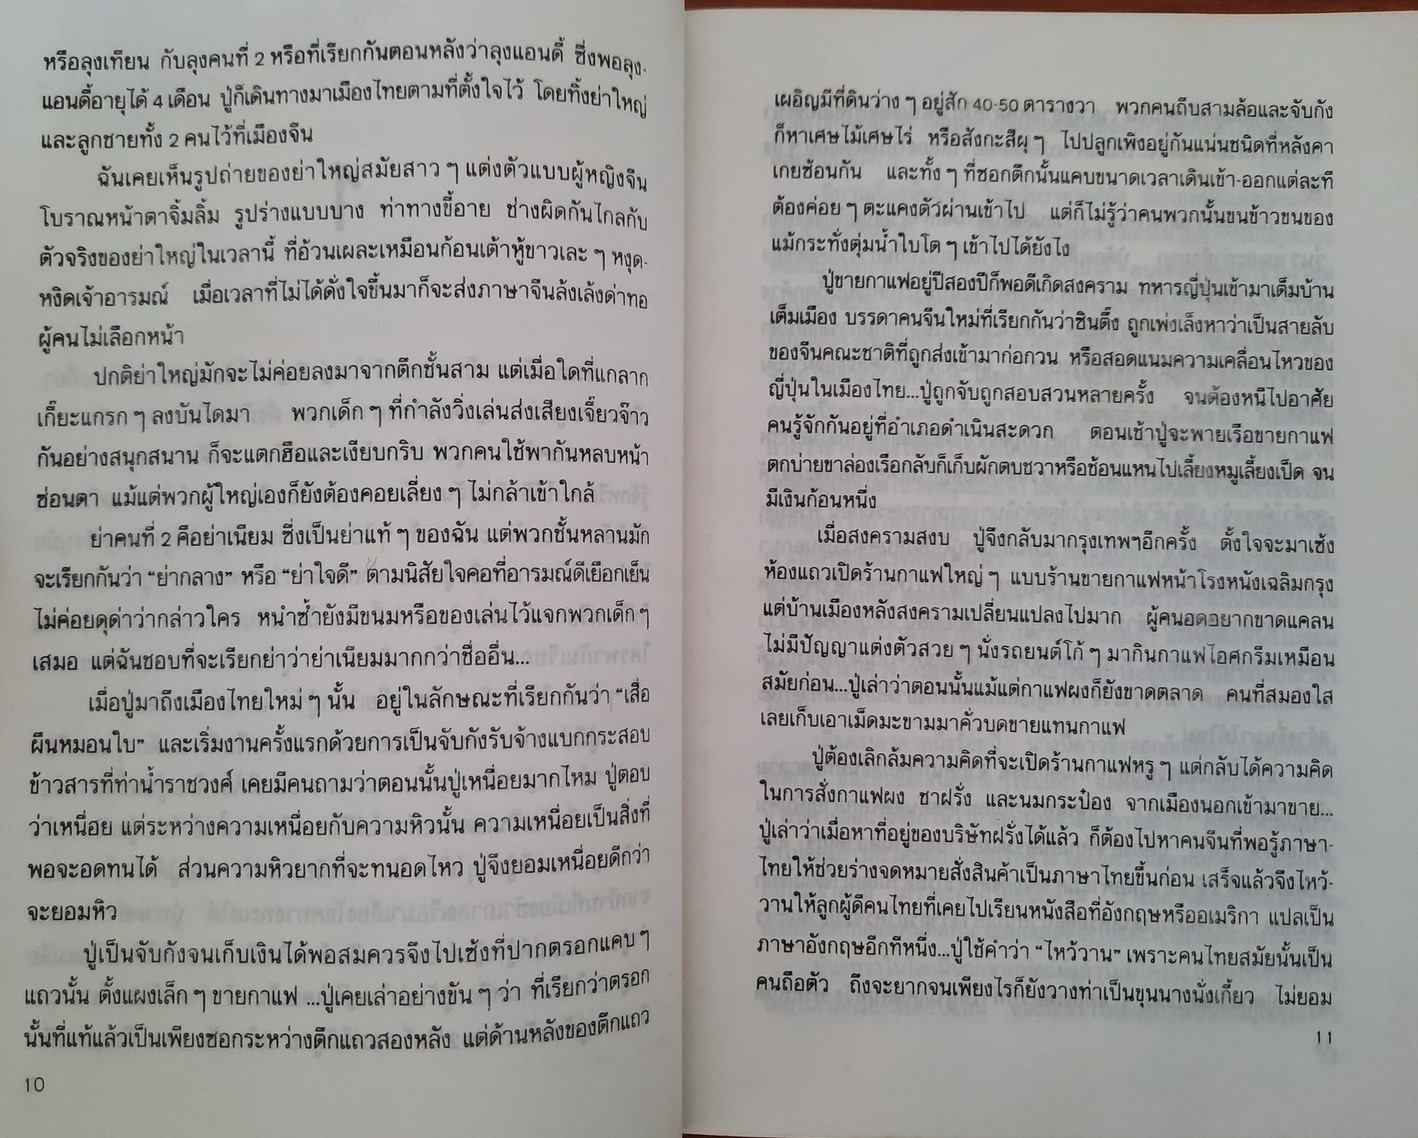 หรือลุงเทียน กับลุงคนที่ 2 หรือที่เรียกกันตอนหลังว่าลุงแอนดี้ ซึ่งพอลุง-
แอนดี้อายุได้ 4 เดือน ปู่ก็เดินทางมาเมืองไทยตามที่ตั้งใจไว้ โดยทิ้งย่าใหญ่
และลูกชายทั้ง 2 คนไว้ที่เมืองจีน
ฉันเคยเห็นรูปถ่ายของย่าใหญ่สมัยสาว ๆ แต่งตัวแบบผู้หญิงจีน
โบราณหน้าตาจิ้มลิ้ม รูปร่างแบบบาง ท่าทางขี้อาย ช่างผิดกันไกลกับ
ตัวจริงของย่าใหญ่ในเวลานี้ ที่อ้วนเผละเหมือนก้อนเต้าหู้ขาวเละ ๆ หงุด-
หงิดเจ้าอารมณ์ เมื่อเวลาที่ไม่ได้ดั่งใจขึ้นมาก็จะส่งภาษาจีนล้งเล้งด่าทอ
ผู้คนไม่เลือกหน้า
ปกติย่าใหญ่มักจะไม่ค่อยลงมาจากตึกชั้นสาม แต่เมื่อใดที่แกลาก
เกี๊ยะแกรก ๆ ลงบันไดมา พวกเด็ก ๆ ที่กำลังวิ่งเล่นส่งเสียงเจี๊ยวจ๊าว
กันอย่างสนุกสนาน ก็จะแตกฮือและเงียบกริบ พวกคนใช้พากันหลบหน้า
ซ่อนตา แม้แต่พวกผู้ใหญ่เองก็ยังต้องคอยเลี่ยง ๆ ไม่กล้าเข้าใกล้
ย่าคนที่ 2 คือย่าเนียม ซึ่งเป็นย่าแท้ ๆ ของฉัน แต่พวกชั้นหลานมัก
จะเรียกกันว่า “ย่ากลาง” หรือ “ย่าใจดี” ตามนิสัยใจคอที่อารมณ์ดีเยือกเย็น
ไม่ค่อยดุด่าว่ากล่าวใคร หนำซ้ำยังมีขนมหรือของเล่นไว้แจกพวกเด็ก ๆ
เสมอ แต่ฉันชอบที่จะเรียกย่าว่าย่าเนียมมากกว่าชื่ออื่น...
เมื่อปู่มาถึงเมืองไทยใหม่ ๆ นั้น อยู่ในลักษณะที่เรียกกันว่า “เสื่อ
ผืนหมอนใบ” และเริ่มงานครั้งแรกด้วยการเป็นจับกังรับจ้างแบกกระสอบ
ข้าวสารที่ท่าน้ำราชวงศ์ เคยมีคนถามว่าตอนนั้นปู่เหนื่อยมากไหม ปู่ตอบ
ว่าเหนื่อย แต่ระหว่างความเหนื่อยกับความหิวนั้น ความเหนื่อยเป็นสิ่งที่
พอจะอดทนได้ ส่วนความหิวยากที่จะทนอดไหว ปู่จึงยอมเหนื่อยดีกว่า
จะยอมหิว
ปู่เป็นจับกังจนเก็บเงินได้พอสมควรจึงไปเซ้งที่ปากตรอกแคบ ๆ
แถวนั้น ตั้งแผงเล็ก ๆ ขายกาแฟ ...ปู่เคยเล่าอย่างขัน ๆ ว่า ที่เรียกว่าตรอก
นั้นที่แท้แล้วเป็นเพียงซอกระหว่างตึกแถวสองหลัง แต่ด้านหลังของตึกแถว
10
เผอิญมีที่ดินว่าง ๆ อยู่สัก 40-50 ตารางวา พวกคนถีบสามล้อและจับกัง
ก็หาเศษไม้เศษไร่ หรือสังกะสีผุ ๆ ไปปลูกเพิงอยู่กันแน่นชนิดที่หลังคา
เกยซ้อนกัน และทั้ง ๆ ที่ซอกตึกนั้นแคบขนาดเวลาเดินเข้า-ออกแต่ละที
ต้องค่อย ๆ ตะแคงตัวผ่านเข้าไป แต่ก็ไม่รู้ว่าคนพวกนั้นขนข้าวขนของ
แม้กระทั่งตุ่มน้ำใบโต ๆ เข้าไปได้ยังไง
ปู่ขายกาแฟอยู่ปีสองปีก็พอดีเกิดสงคราม ทหารญี่ปุ่นเข้ามาเต็มบ้าน
เต็มเมือง บรรดาคนจีนใหม่ที่เรียกกันว่าซินตึ๊ง ถูกเพ่งเล็งหาว่าเป็นสายลับ
ของจีนคณะชาติที่ถูกส่งเข้ามาก่อกวน หรือสอดแนมความเคลื่อนไหวของ
ญี่ปุ่นในเมืองไทย...ปู่ถูกจับถูกสอบสวนหลายครั้ง จนต้องหนีไปอาศัย
คนรู้จักกันอยู่ที่อำเภอดำเนินสะดวก ตอนเช้าปู่จะพายเรือขายกาแฟ
ตกบ่ายขาล่องเรือกลับก็เก็บผักตบชวาหรือช้อนแหนไปเลี้ยงหมูเลี้ยงเป็ด จน
มีเงินก้อนหนึ่ง
เมื่อสงครามสงบ ปู่จึงกลับมากรุงเทพฯอีกครั้ง ตั้งใจจะมาเซ้ง
ห้องแถวเปิดร้านกาแฟใหญ่ ๆ แบบร้านขายกาแฟหน้าโรงหนังเฉลิมกรุง
แต่บ้านเมืองหลังสงครามเปลี่ยนแปลงไปมาก ผู้คนอดอยากขาดแคลน
ไม่มีปัญญาแต่งตัวสวย ๆ นั่งรถยนต์โก้ ๆ มากินกาแฟไอศกรีมเหมือน
สมัยก่อน...ปู่เล่าว่าตอนนั้นแม้แต่กาแฟผงก็ยังขาดตลาด คนที่สมองใส
เลยเก็บเอาเม็ดมะขามมาคั่วบดขายแทนกาแฟ
ปู่ต้องเลิกล้มความคิดที่จะเปิดร้านกาแฟหรู ๆ แต่กลับได้ความคิด
ในการสั่งกาแฟผง ชาฝรั่ง และนมกระป๋อง จากเมืองนอกเข้ามาขาย...
ปู่เล่าว่าเมื่อหาที่อยู่ของบริษัทฝรั่งได้แล้ว ก็ต้องไปหาคนจีนที่พอรู้ภาษา-
ไทยให้ช่วยร่างจดหมายสั่งสินค้าเป็นภาษาไทยขึ้นก่อน เสร็จแล้วจึงไหว้-
วานให้ลูกผู้ดีคนไทยที่เคยไปเรียนหนังสือที่อังกฤษหรืออเมริกา แปลเป็น
ภาษาอังกฤษอีกทีหนึ่ง...ปู่ใช้คำว่า “ไหว้วาน” เพราะคนไทยสมัยนั้นเป็น
คนถือตัว ถึงจะยากจนเพียงไรก็ยังวางท่าเป็นขุนนางนั่งเกี้ยว ไม่ยอม
11